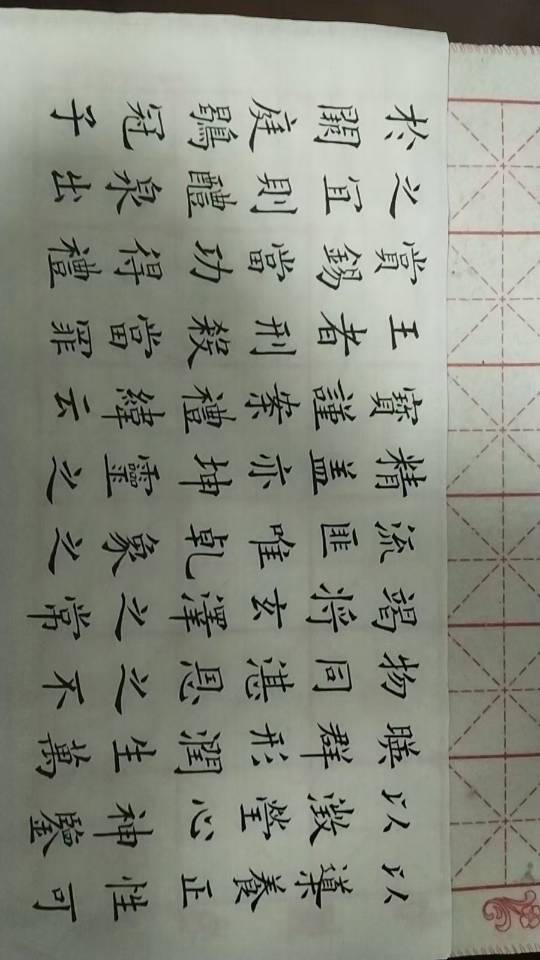 以導養正性可
以澂瑩心神鑒
暎群形潤生萬
物同湛恩之不
竭將玄澤之常
流匪唯乾象之
精盖亦坤靈之
寶謹案禮緯云
王者刑殺當罪
賞錫當功得禮
之宜則醴泉出
於闕庭鶡冠子